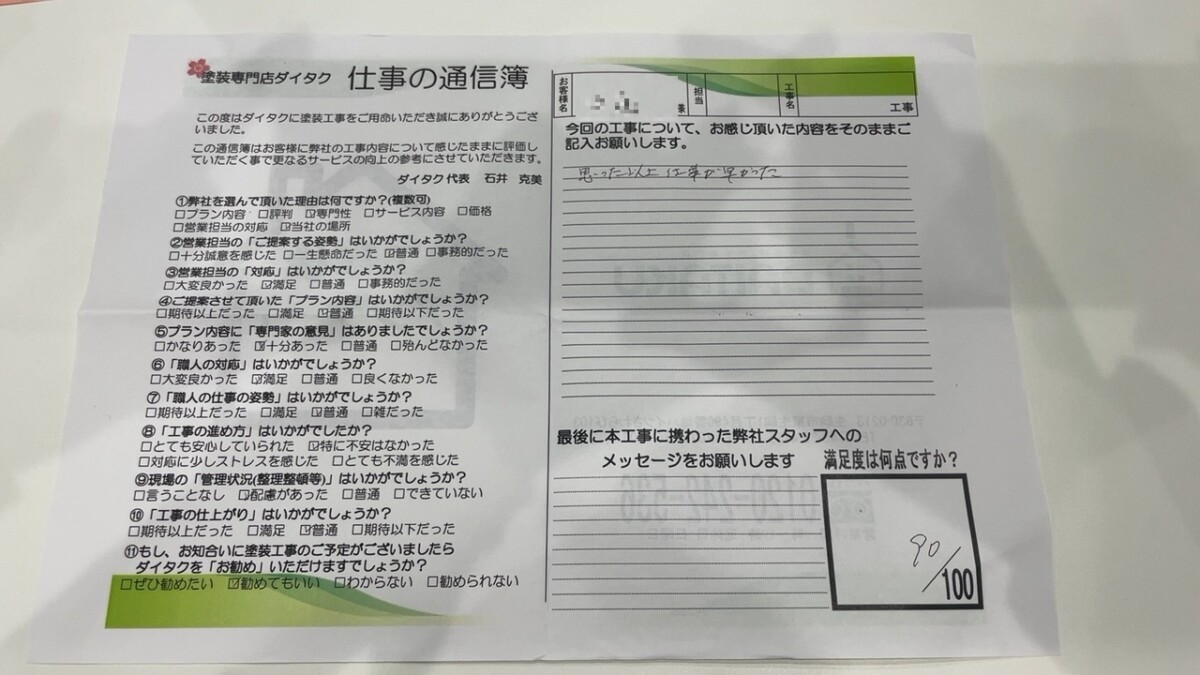 塗装専門店ダイタク 仕事の通信簿
この度はダイタクに塗装工事をご用命いただき誠にありがとうござ
いました。
この通信簿はお客様に弊社の工事内容について感じたままに評価し
ていただく事で更なるサービスの向上の参考にさせていただきます。
ダイタク代表 石井 克美
①弊社を選んで頂いた理由は何ですか?(複数可)
□プラン内容 □評判 ☑専門性 □サービス内容 □価格
□営業担当の対応 ☑当社の場所
②営業担当の「ご提案する姿勢」はいかがでしょうか?
□十分誠意を感じた □一生懸命だった ☑普通 □事務的だった
③営業担当の「対応」はいかがでしょうか?
□大変良かった ☑満足 □普通 □事務的だった
④ご提案させて頂いた「プラン内容」はいかがでしょうか?
□期待以上だった □満足 ☑普通 □期待以下だった
⑤プラン内容に「専門家の意見」はありましたでしょうか?
□かなりあった ☑十分あった □普通 □殆んどなかった
⑥「職人の対応」はいかがでしょうか?
□大変良かった ☑満足 □普通 □良くなかった
⑦「職人の仕事の姿勢」はいかがでしょうか?
□期待以上だった □満足 ☑普通 □雑だった
⑧「工事の進め方」はいかがでしたか?
□とても安心していられた ☑特に不安はなかった
□対応に少しストレスを感じた □とても不満を感じた
⑨現場の「管理状況(整理整頓等)」はいかがでしょうか?
□言うことなし ☑配慮があった □普通 □できていない
⑩「工事の仕上がり」はいかがでしょうか?
□期待以上だった □満足 ☑普通 □期待以下だった
⑪もし、お知合いに塗装工事のご予定がございましたら
ダイタクを「お勧め」いただけますでしょうか?
□ぜひ勧めたい ☑勧めてもいい □わからない □勧められない
お客様名 様 担当 工事名 工事
今回の工事について、お感じ頂いた内容をそのままご
記入お願いします。
思った以上 仕事が早かった
最後に本工事に携わった弊社スタッフへの
メッセージをお願いします
満足度は何点ですか?
90/100